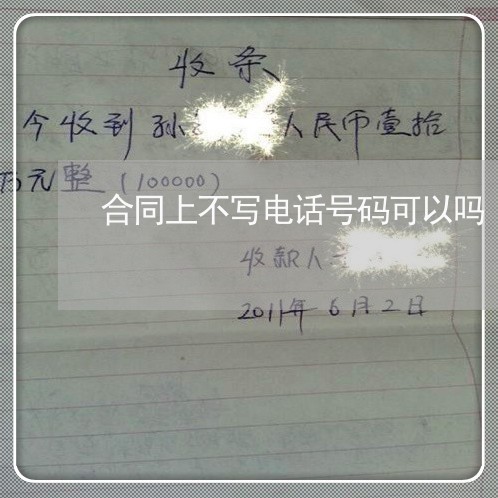 收条
今收到孙 人民币壹拾
万元整（100000）
合同上不写电话号码可以吗
收款人
2011年6月2日